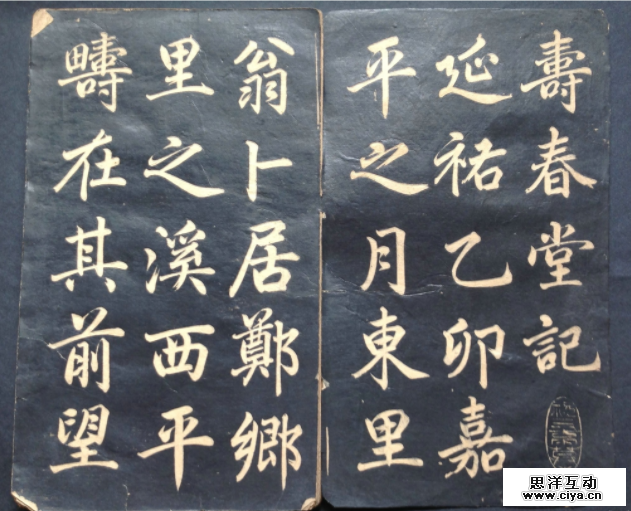 壽春堂記
延祐乙卯嘉
平之月東里
翁卜居鄭鄉
里之溪西平
疇在其前望
思洋互动
www.ciya.cn